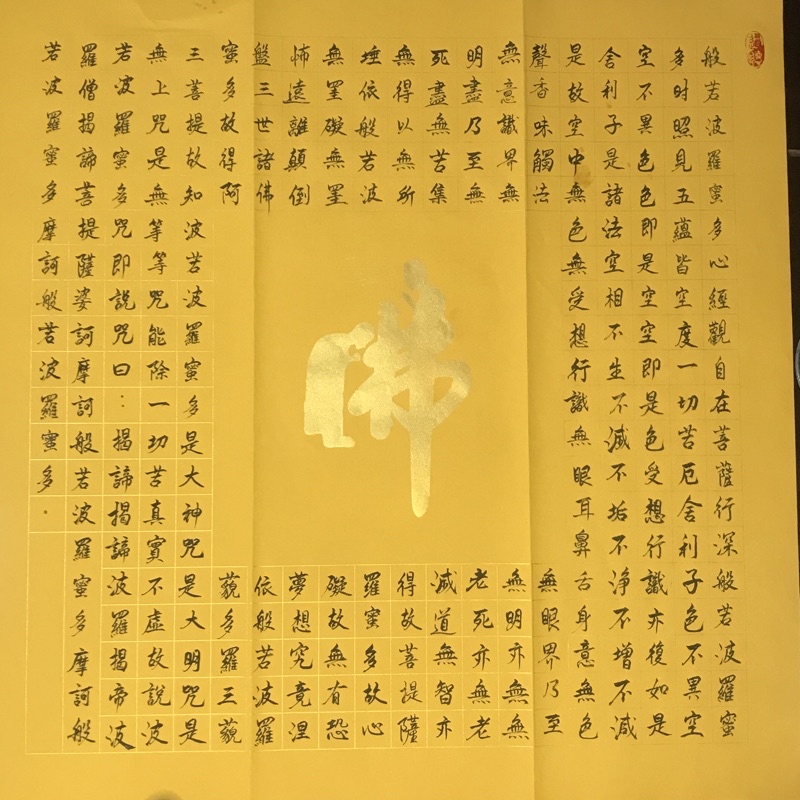 般若波羅蜜多心經觀自在菩薩行深般若波羅蜜
多时照見五蘊皆空度一切苦厄舍利子色不異空
空不異色色即是空空即是色受想行識亦復如是
舍利子是諸法空相不生不滅不垢不淨不增不減
是故空中無色無受想行識無眼耳鼻舌身意無色
聲香味觸法無眼界乃至
無意識界無無明亦無無
明盡乃至無老死亦無老
死盡無苦集滅道無智亦
無得以無所得故菩提薩
埵依般若波羅蜜多故心
無罣礙無罣礙故無有恐
怖遠離顛倒夢想究竟涅
盤三世諸佛依般若波羅
蜜多故得阿藐多羅三藐
三菩提故知波若波羅蜜多是大神咒是大明咒是
無上咒是無等等咒能除一切苦真實不虛故說波
若波羅蜜多咒即說咒曰：揭諦揭諦波羅揭帝波
羅僧揭諦菩提薩婆訶摩訶般若波羅蜜多摩訶般
若波羅蜜多摩訶般若波羅蜜多.
佛